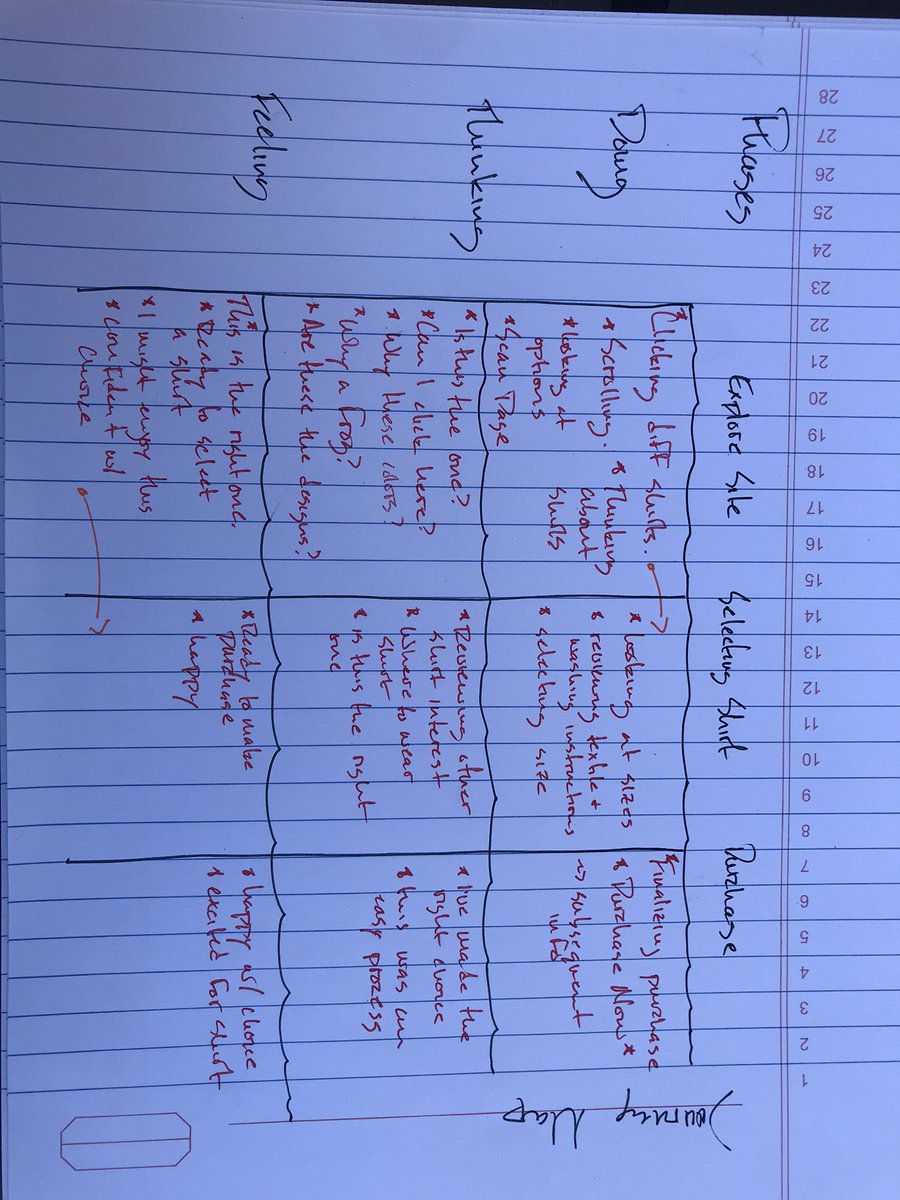 Journey Map
Phases
Explore Site
Selecting Shirt
Purchase
Doing
* Clicking diff shirts.
* Scrolling. * Thinking
about
shirts
* looking at
options
* Scan Page
* looking at sizes
* reviewing textile +
washing instructions
* selecting size
* Finalizing purchase
* Purchase Now *
↳ subsequent
info
Thinking
* Is this the one?
* Can I click here?
* Why these colors?
* Why a Frog?
* Are these the designs?
* Reviewing other
shirt interest
* Where to wear
shirt
* is this the right
one
* I've made the
right choice
* this was an
easy process
Feeling
* This is the right one.
* Ready to select
a shirt
* I might enjoy this
* confident w/
choice
* Ready to make
purchase
* happy
* happy w/ choice
* excited for shirt
28
27
26
25
24
23
22
21
20
19
18
17
16
15
14
13
12
11
10
9
8
7
6
5
4
3
2
1